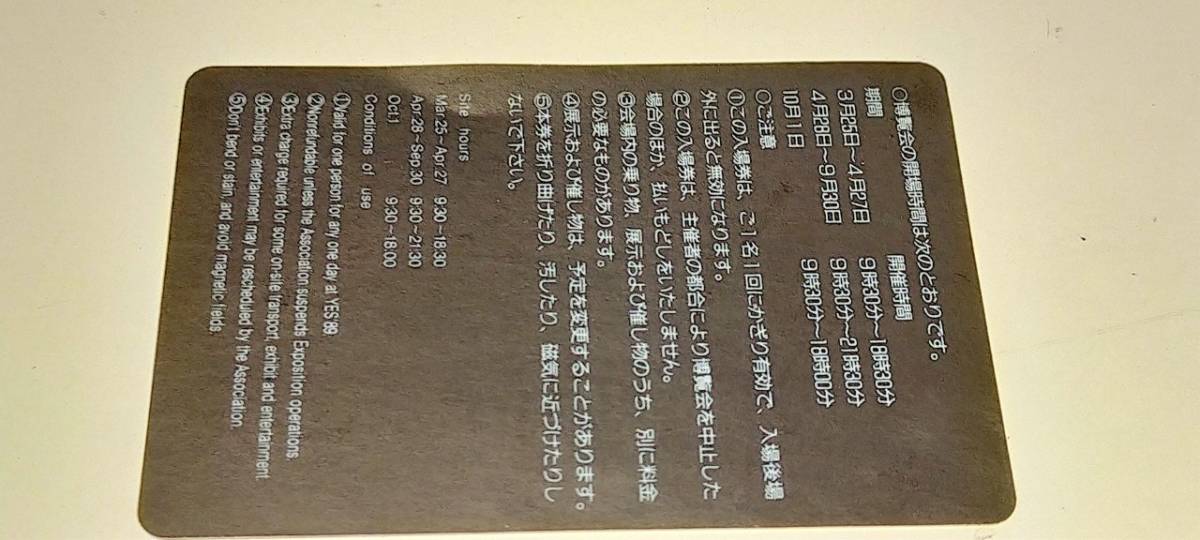 ○博覧会の開場時間は次のとおりです。
期間 開催時間
3月25日〜4月27日 9時30分〜18時30分
4月28日〜9月30日 9時30分〜21時30分
10月1日 9時30分〜18時00分
○ご注意
①この入場券は、ご1名1回にかぎり有効で、入場後場
外に出ると無効になります。
②この入場券は、主催者の都合により博覧会を中止した
場合のほか、払いもどしをいたしません。
③会場内の乗り物、展示および催し物のうち、別に料金
の必要なものがあります。
④展示および催し物は、予定を変更することがあります。
⑤本券を折り曲げたり、汚したり、磁気に近づけたりし
ないで下さい。
Site hours
Mar.25~Apr.27 9:30~18:30
Apr.28~Sep.30 9:30~21:30
Oct.1 9:30~18:00
Conditions of use
①Valid for one person for any one day at YES'89.
②Nonrefundable unless the Association suspends Exposition operations.
③Extra charge required for some on-site transport, exhibit, and entertainment.
④Exhibits or entertainment may be rescheduled by the Association.
⑤Don't bend or stain, and avoid magnetic fields.